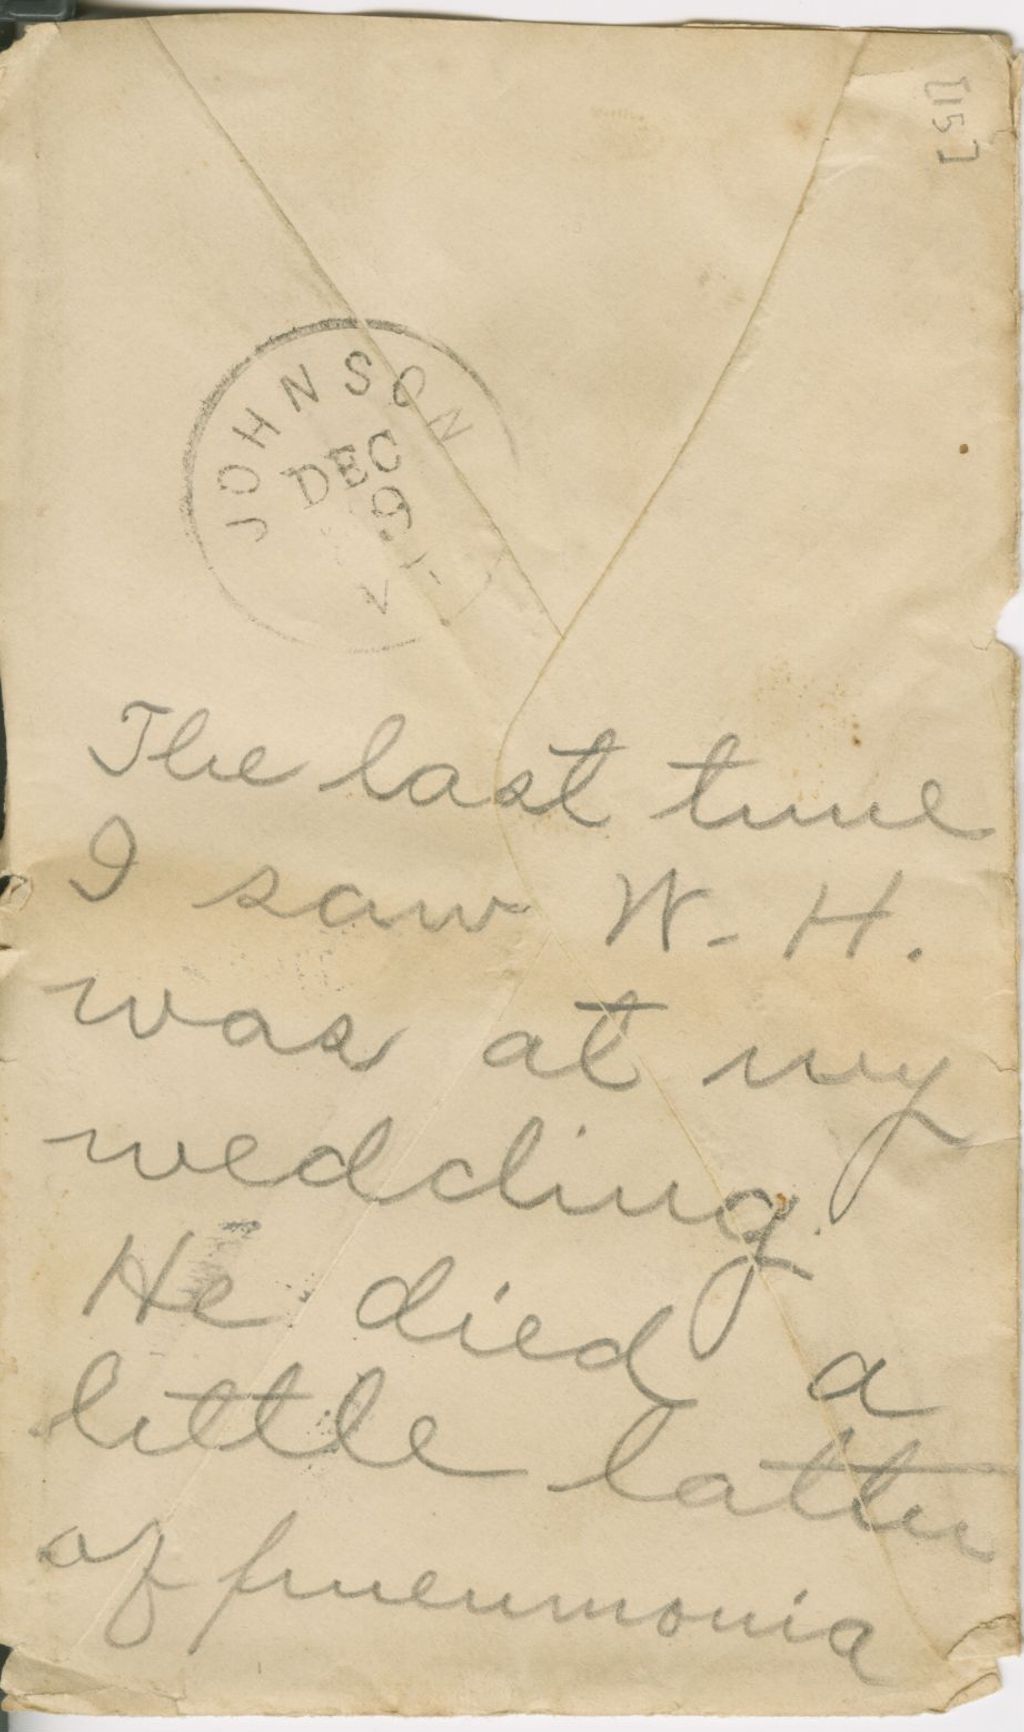 [15]
JOHNSON
DEC
9
V
The last time
I saw W. H.
was at my
wedding.
He died a
little latter
of pneumonia